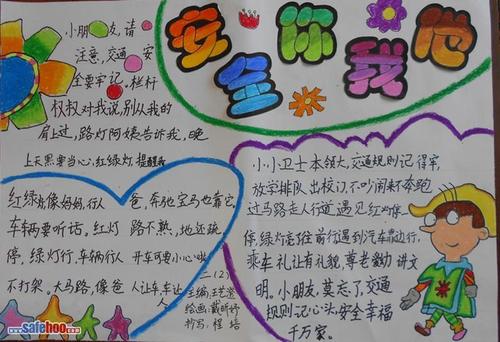 安全你我他
小朋友,请
注意,交通安
全要牢记。栏杆
杈杈对我说,别从我的
肩上过,路灯阿姨告诉我,晚
上天黑要当心,红绿灯提醒我
红绿灯像妈妈,行人
车辆要听话。红灯
停,绿灯行,车辆行人
不打架。大马路,像爸
爸,奔驰宝马也靠它,
路不熟,地还疏
开车可要小心呦
人让车,车让
人
二(2)
主编:王艺澄
绘画:戴昕妤
抄写:程培
小小卫士本领大,交通规则记得牢,
放学排队出校门,不吵闹来不奔跑
过马路走人行道遇见红灯停
停,绿灯亮了往前行遇到汽车靠边行,
乘车礼让有礼貌,尊老爱幼讲文
明。小朋友,莫忘了,交通
规则记心头,安全幸福
千万家。
www.safehoo.com